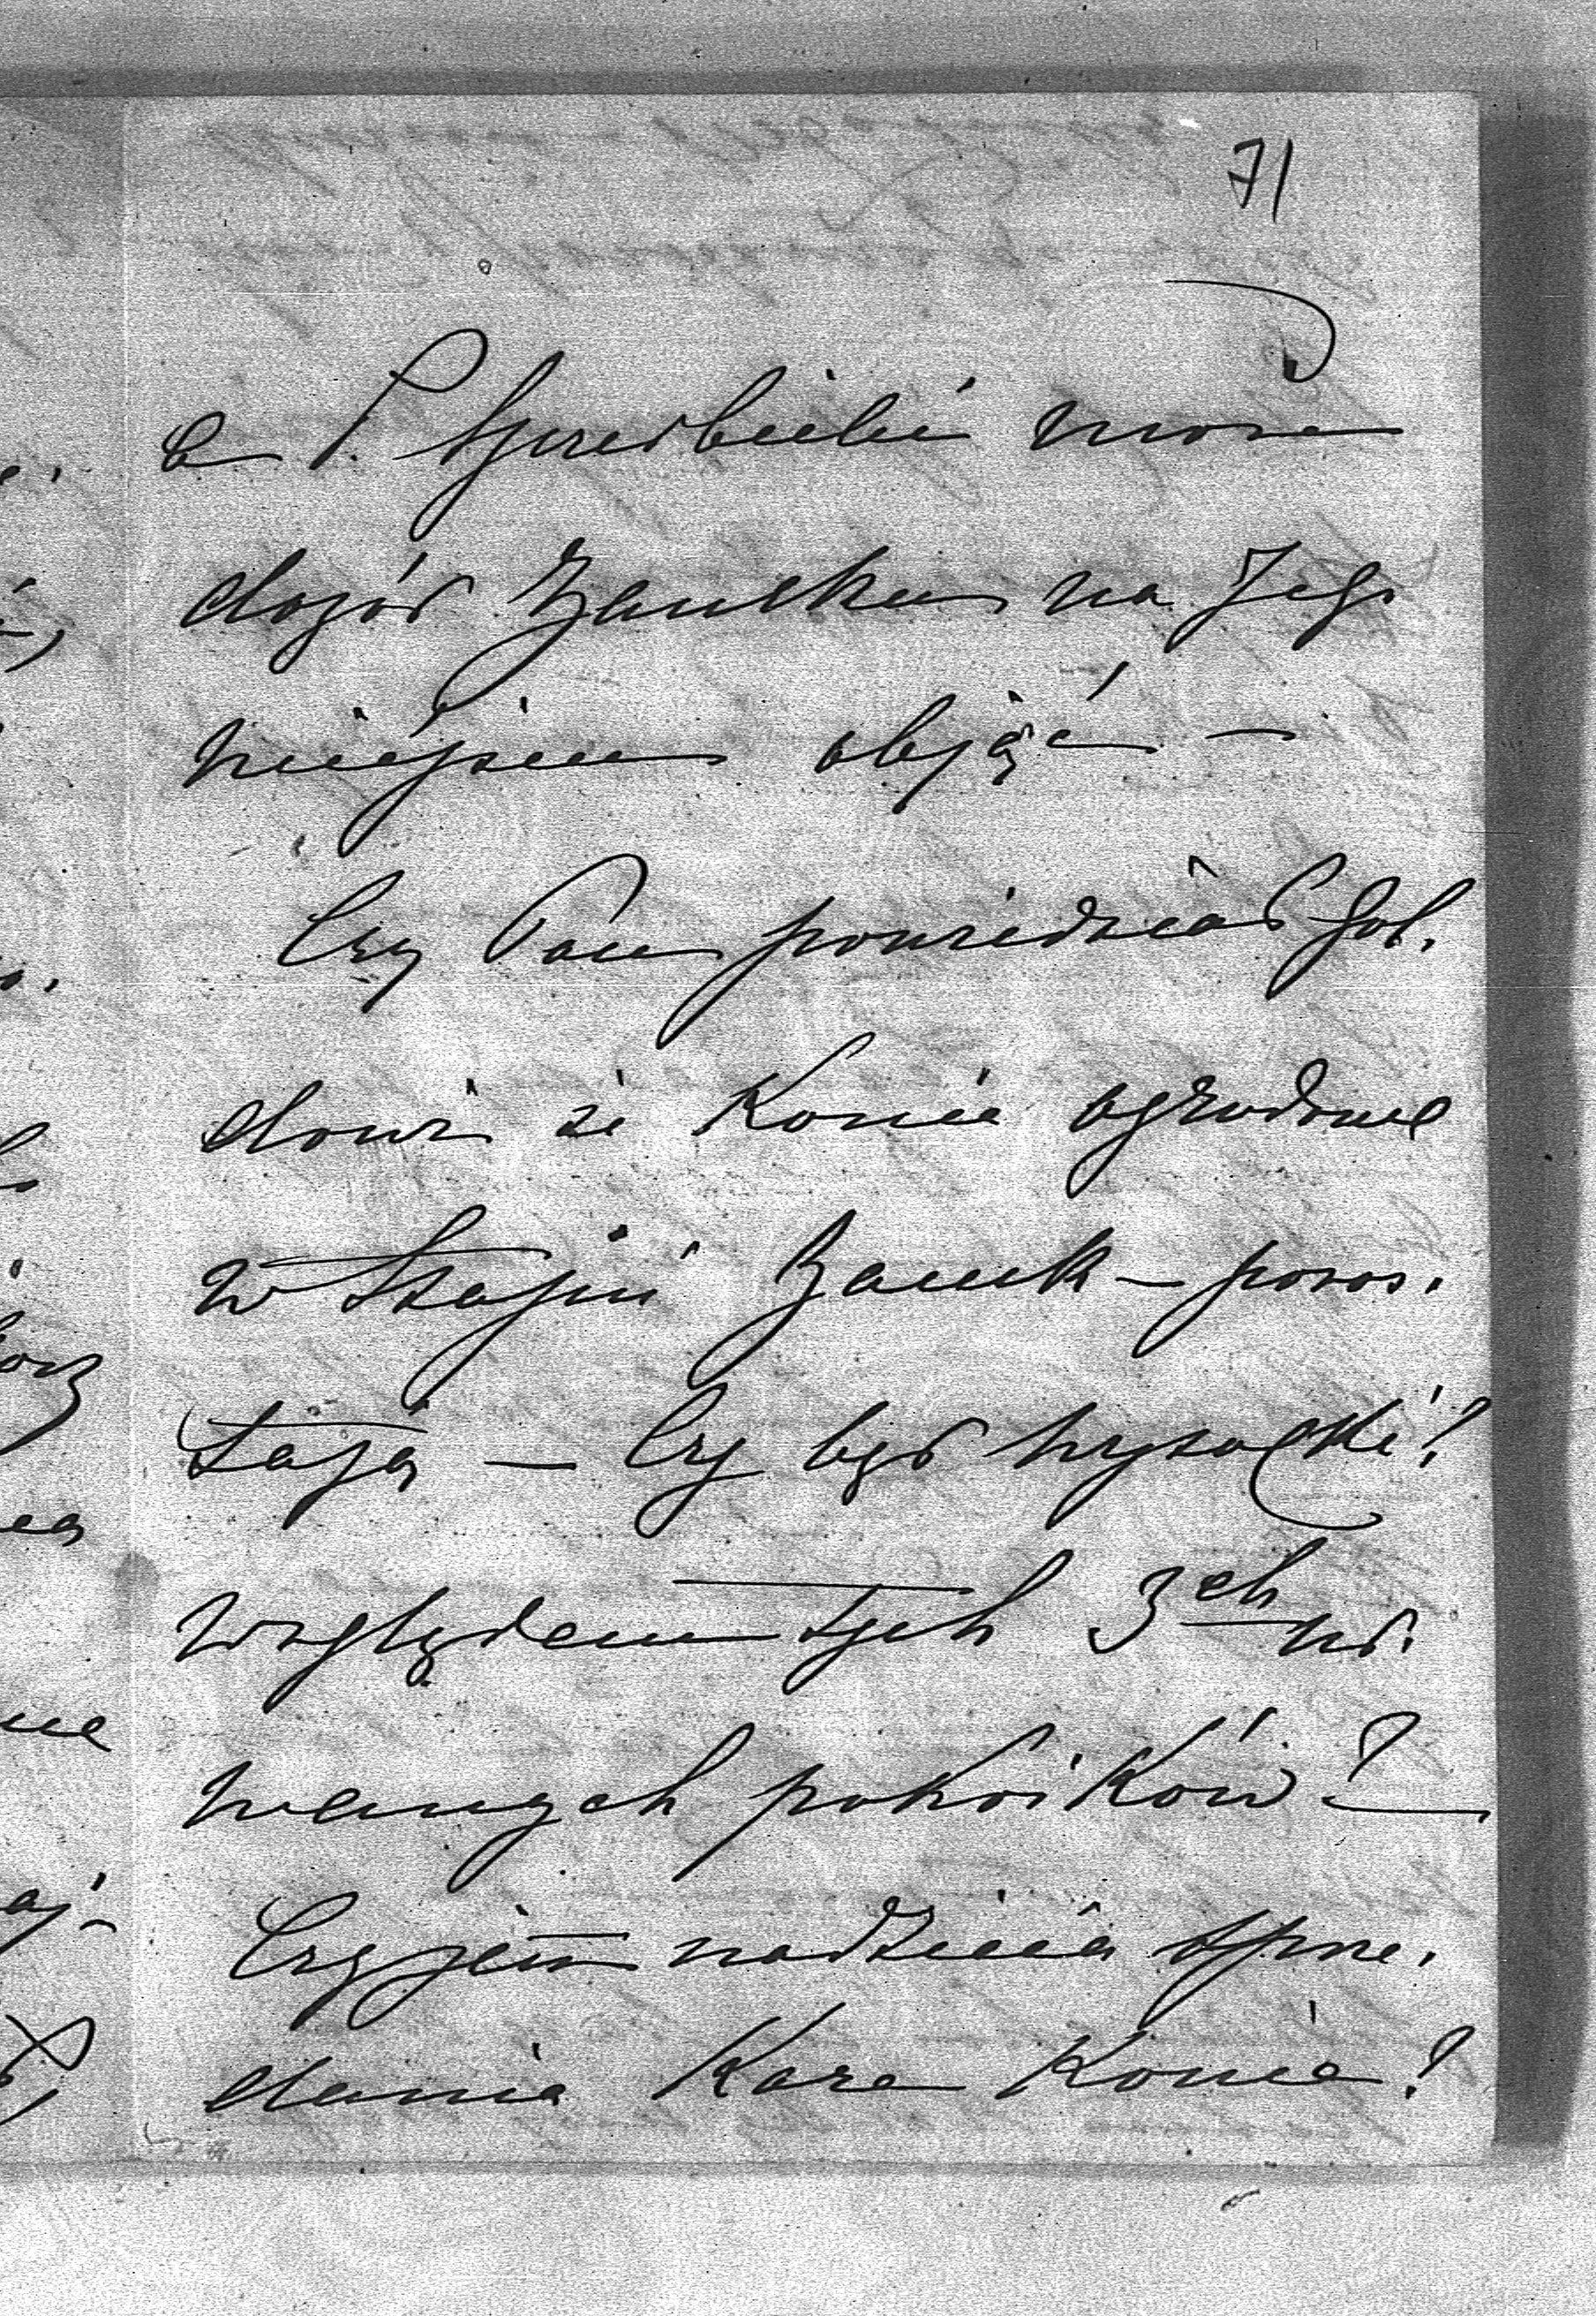 71
a P. może
dozór Zamku na Jego
miejscu objąć —
Czy Pan powiedział Gol.
dowi że Konie ogrodowe
w Stajni Zamk – pozos.
tają — Czy był Wysocki?
względem tych 3ch
wanych pokoików?
Czy jest nadzieia sprze.
dania Kare Konie?